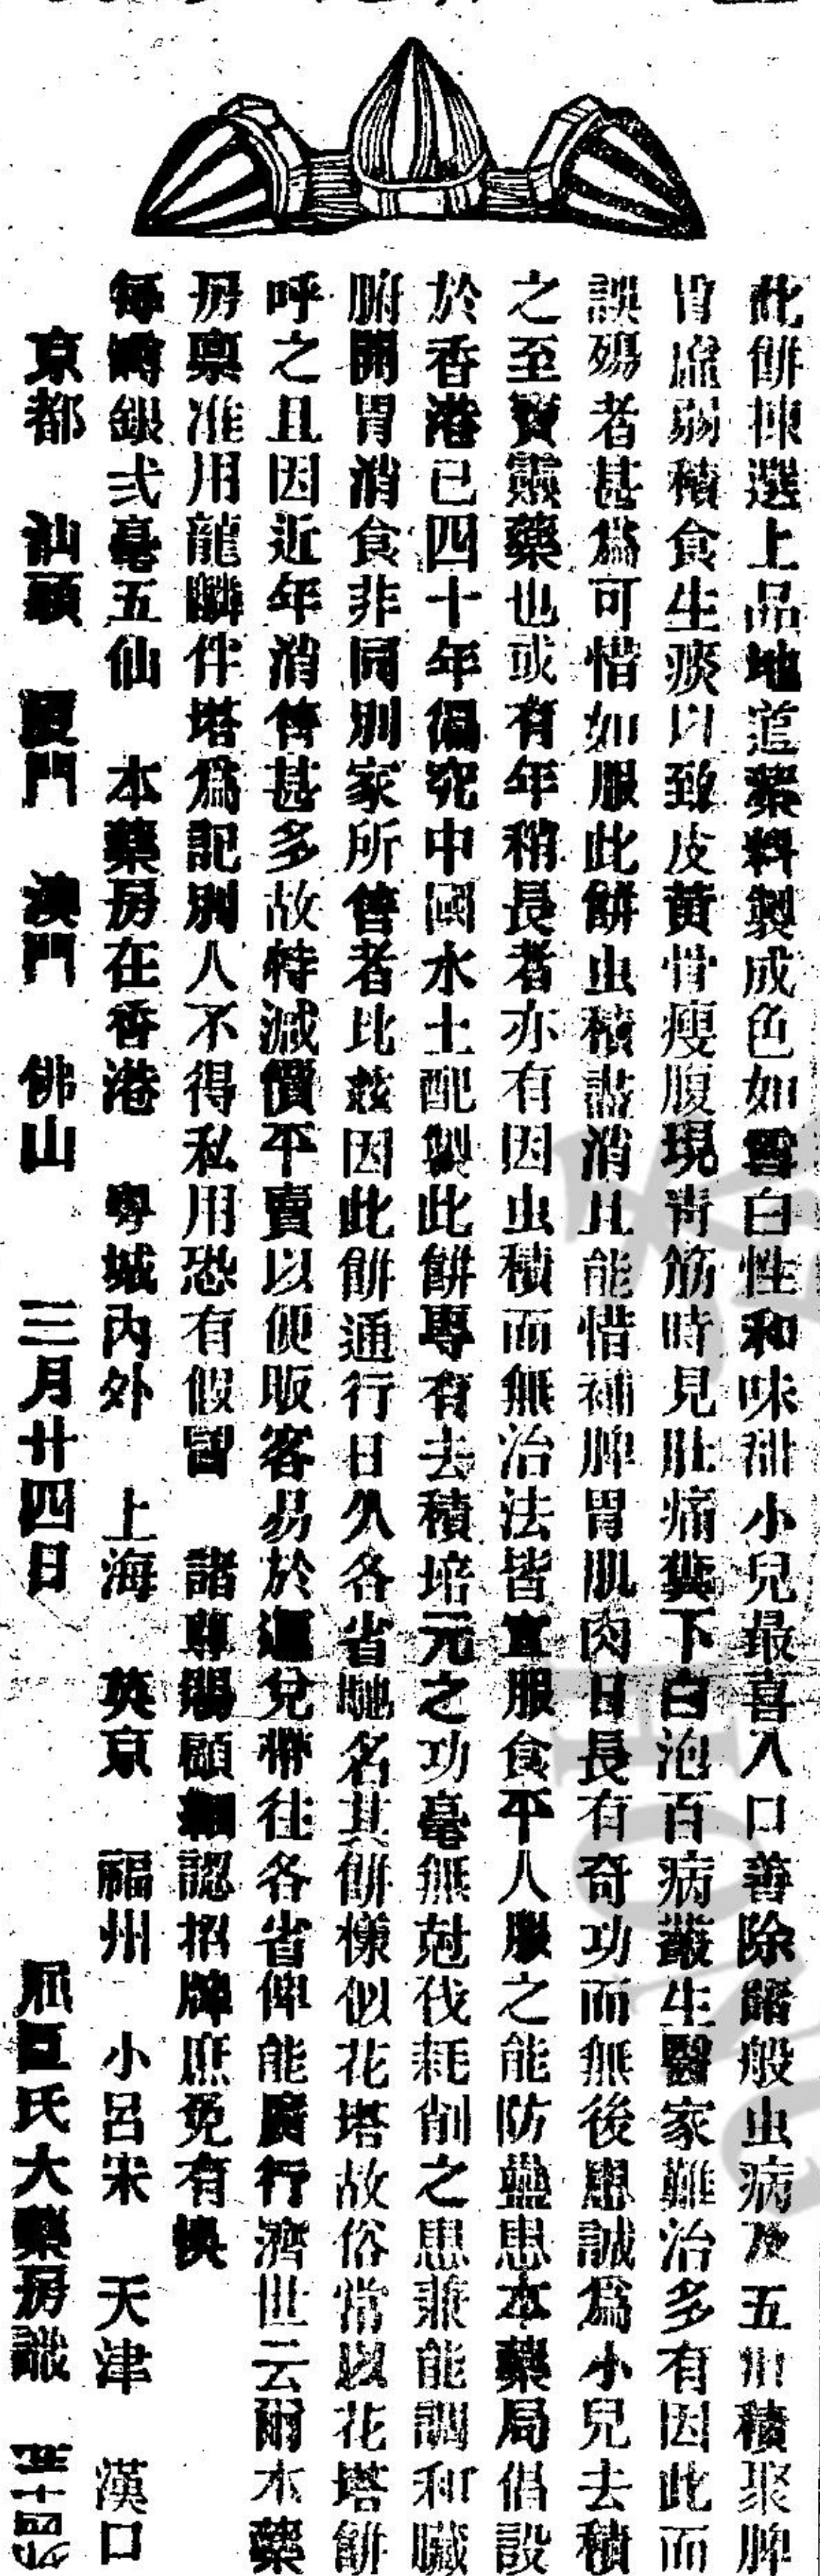 此餅揀選上品地道藥料製成色如雪白性和味甜小兒最喜入口善除諸般虫病及五疳積聚脾
胃虛弱積食生痰以致皮黃骨瘦腹現青筋時見肚痛糞下白泡百病叢生醫家難治多有因此而
誤殤者甚為可惜如服此餅虫積盡消且能惜補脾胃肌肉日長有奇功而無後患誠為小兒去積
之至寶靈藥也或有年稍長者亦有因虫積而無治法皆宜服食平人服之能防蠱患本藥局倡設
於香港已四十年徧究中國水土配製此餅專有去積培元之功毫無尅伐耗削之患兼能調和臟
腑開胃消食非同別家所售者比茲因此餅通行日久各省馳名其餅樣似花塔故俗常以花塔餅
呼之且因近年消售甚多故特減價平賣以便販客易於運兌帶往各省俾能廣行濟世云爾本藥
房稟准用龍麟伴塔為記別人不得私用恐有假冒 諸尊賜顧細認招牌庶免有悞
每罇銀弍毫五仙 本藥房在香港 粤城內外 上海 英京 福州 小呂宋 天津 漢口
京都 汕頭 廈門 澳門 佛山 三月廿四日 屈臣氏大藥房謹